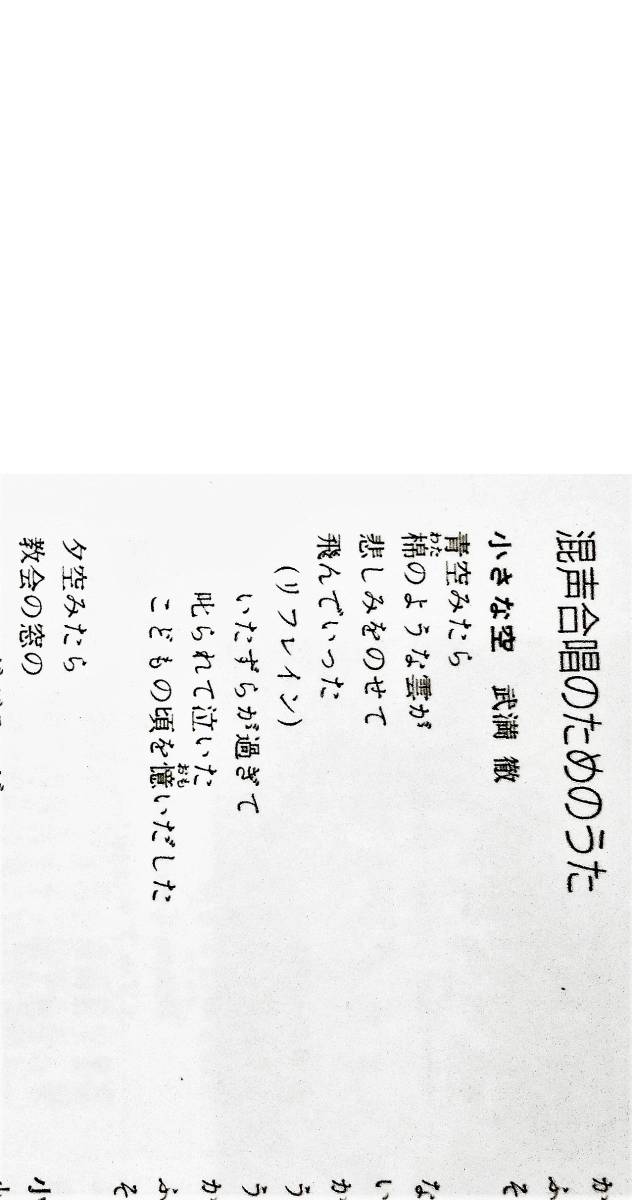 混声合唱のためのうた
小さな空　武満 徹
青空みたら
綿のような雲が
わた
悲しみをのせて
飛んでいった
(リフレイン)
いたずらが過ぎて
叱られて泣いた
こどもの頃を憶いだした
おも
夕空みたら
教会の窓の